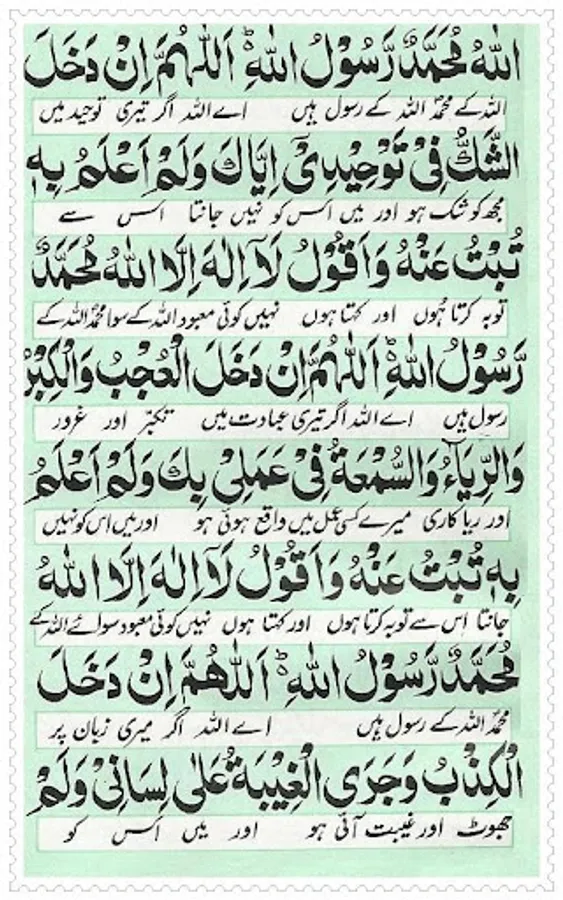 اللّٰهُ مُحَمَّدٌ رَّسُوْلُ اللّٰهِ ؕ اَللّٰهُمَّ اِنْ دَخَلَ
اللہ کے محمدؐ اللہ کے رسول ہیں اے اللہ اگر تیری توحید میں
الشَّكُّ فِيْ تَوْحِيْدِيْٓ اِيَّاكَ وَلَمْ اَعْلَمُ بِهٖ
مجھ کو شک ہو اور میں اس کو نہیں جانتا اس سے
تُبْتُ عَنْهُ وَاَقُوْلُ لَآ اِلٰهَ اِلَّا اللّٰهُ مُحَمَّدٌ
توبہ کرتا ہوں اور کہتا ہوں نہیں کوئی معبود اللہ کے سوا محمدؐ اللہ کے
رَّسُوْلُ اللّٰهِ ؕ اَللّٰهُمَّ اِنْ دَخَلَ الْعُجْبُ وَالْكِبْرُ
رسول ہیں اے اللہ اگر تیری عبادت میں تکبّر اور غرور
وَالرِّيَآءُ وَالسُّمْعَةُ فِيْ عَمَلِيْ بِكَ وَلَمْ اَعْلَمُ
اور ریا کاری میرے کسی عمل میں واقع ہوئی ہو اور میں اس کو نہیں
بِهٖ تُبْتُ عَنْهُ وَاَقُوْلُ لَآ اِلٰهَ اِلَّا اللّٰهُ
جانتا اس سے توبہ کرتا ہوں اور کہتا ہوں نہیں کوئی معبود سوائے اللہ کے
مُحَمَّدٌ رَّسُوْلُ اللّٰهِ ؕ اَللّٰهُمَّ اِنْ دَخَلَ
محمدؐ اللہ کے رسول ہیں اے اللہ اگر میری زبان پر
الْكِذْبُ وَجَرَى الْغِيْبَةُ عَلٰى لِسَانِيْ وَلَمْ
جھوٹ اور غیبت آئی ہو اور میں اس کو